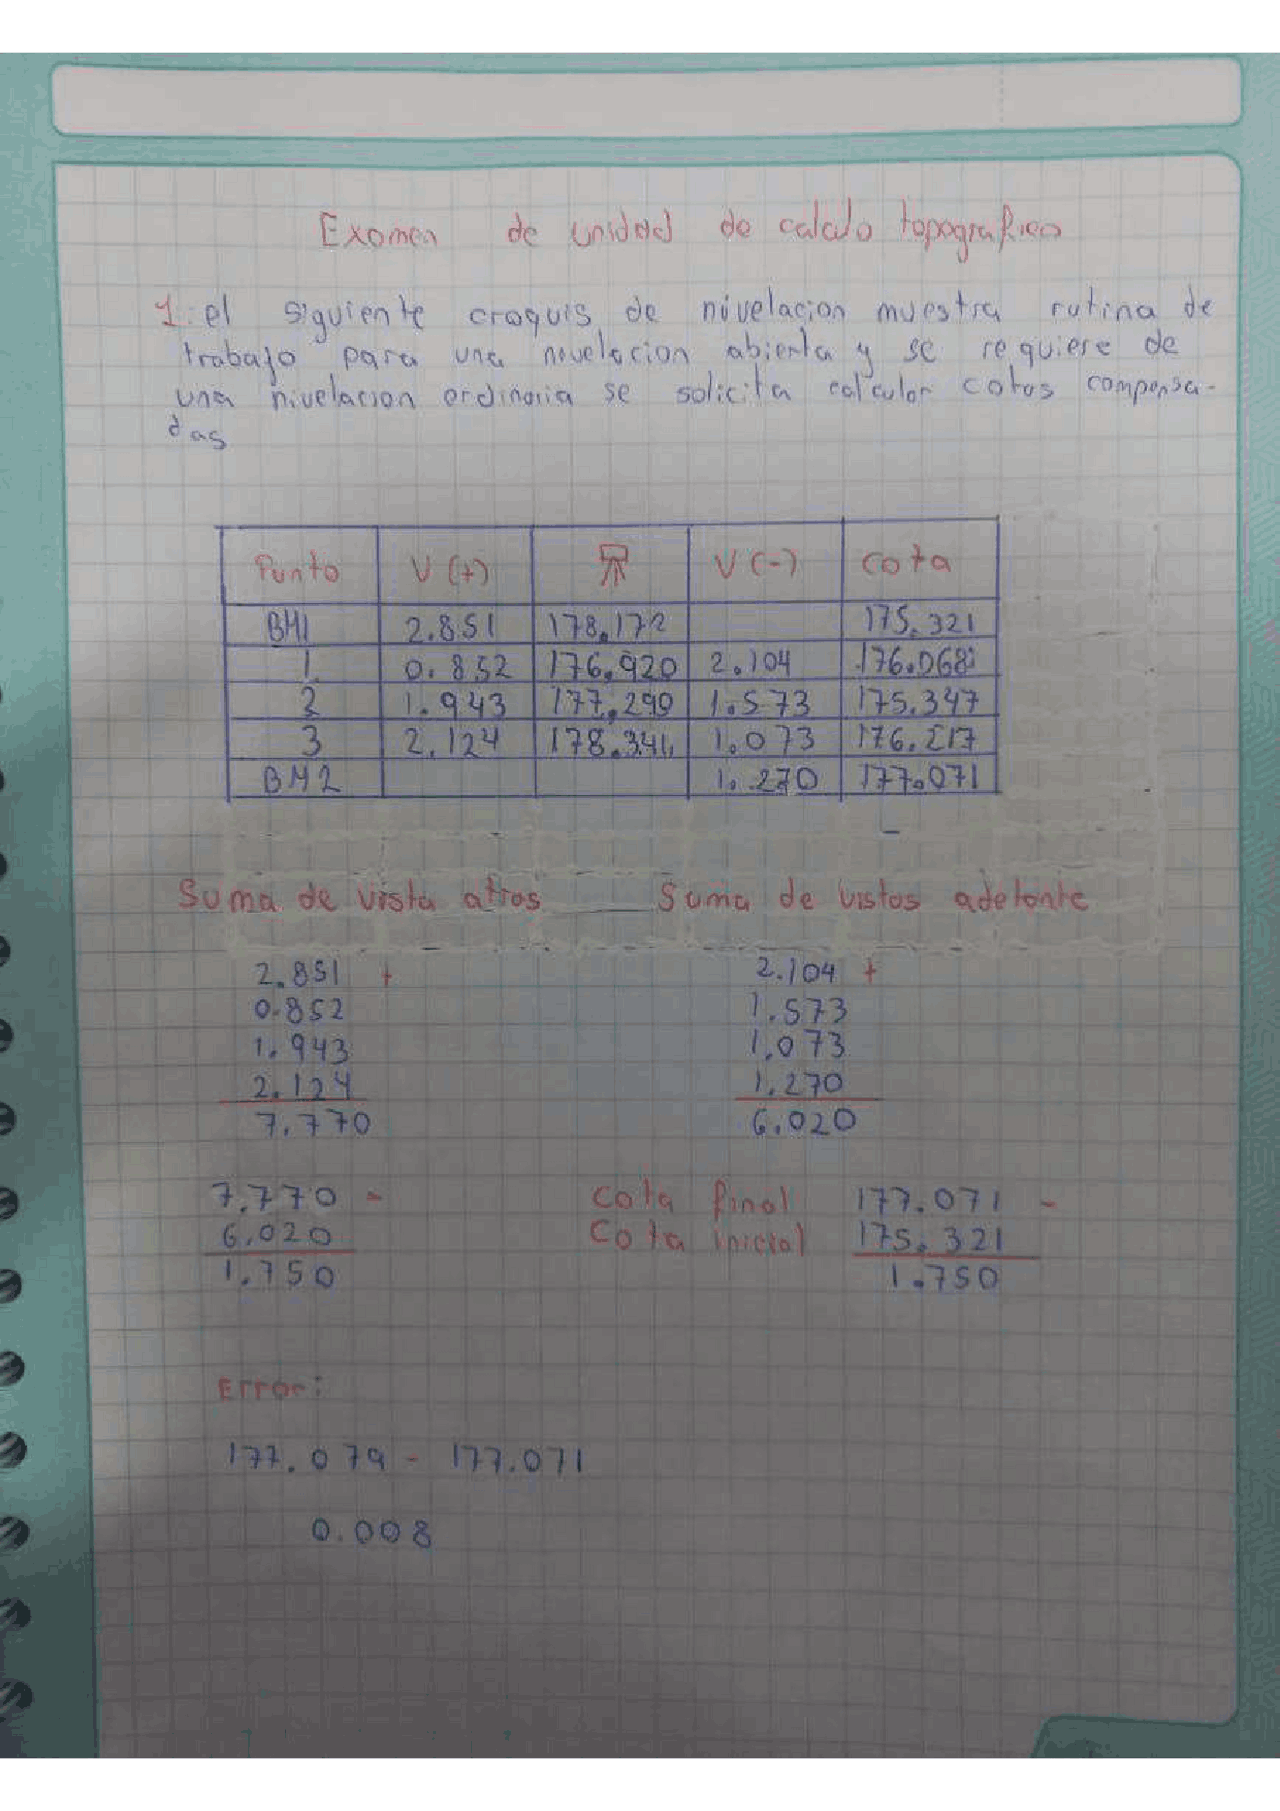 Examen de unidad de calculo topografico
1. el siguiente croquis de nivelacion muestra rutina de
trabajo para una nivelacion abierta y se requiere de
una nivelacion ordinaria se solicita calcular cotas compensa-
das
Punto V (+) V (-) cota
BM1 2.851 178.172 175.321
1 0.852 176.920 2.104 176.068
2 1.943 177.290 1.573 175.347
3 2.124 178.341 1.073 176.217
BM2 1.270 177.071
Suma de vista atras Suma de vistas adelante
2.851 + 2.104 +
0.852 1.573
1.943 1.073
2.124 1.270
7.770 6.020
7.770 - cota final 177.071 -
6.020 Cota inicial 175.321
1.750 1.750
Error:
177.079 - 177.071
0.008